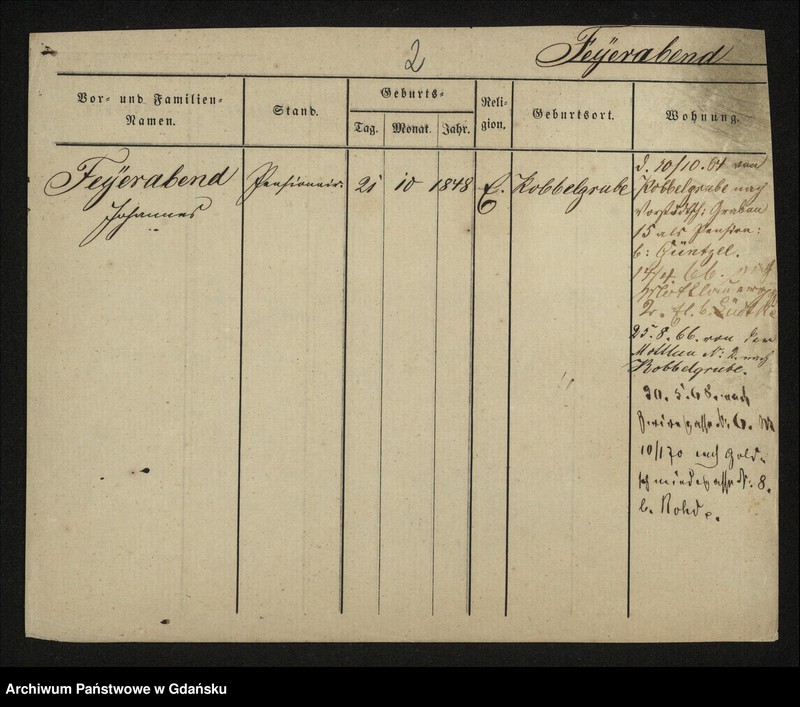 2
Feÿerabend
Vor- und Familien-
Namen.
Stand.
Geburts-
Tag.
Monat.
Jahr.
Reli-
gion.
Geburtsort.
Wohnung.
Feÿerabend
Johannes
Pensionair.
21
10
1848
E.
Kobbelgrube
d. 10/10. 64 von
Kobbelgrube nach
Vorstädtsch: Graben
15 als Pension:
b: Güntzel.
14/4. 66.
2. b. Lüdtke
25. 8. 66. von der
Mottlau N: 2. nach
Kobbelgrube.
30. 5. 68. nach
N: 6.
10/1 70 nach Gold-
schmiedegasse N: 8.
b. Rohde.
Archiwum Państwowe w Gdańsku